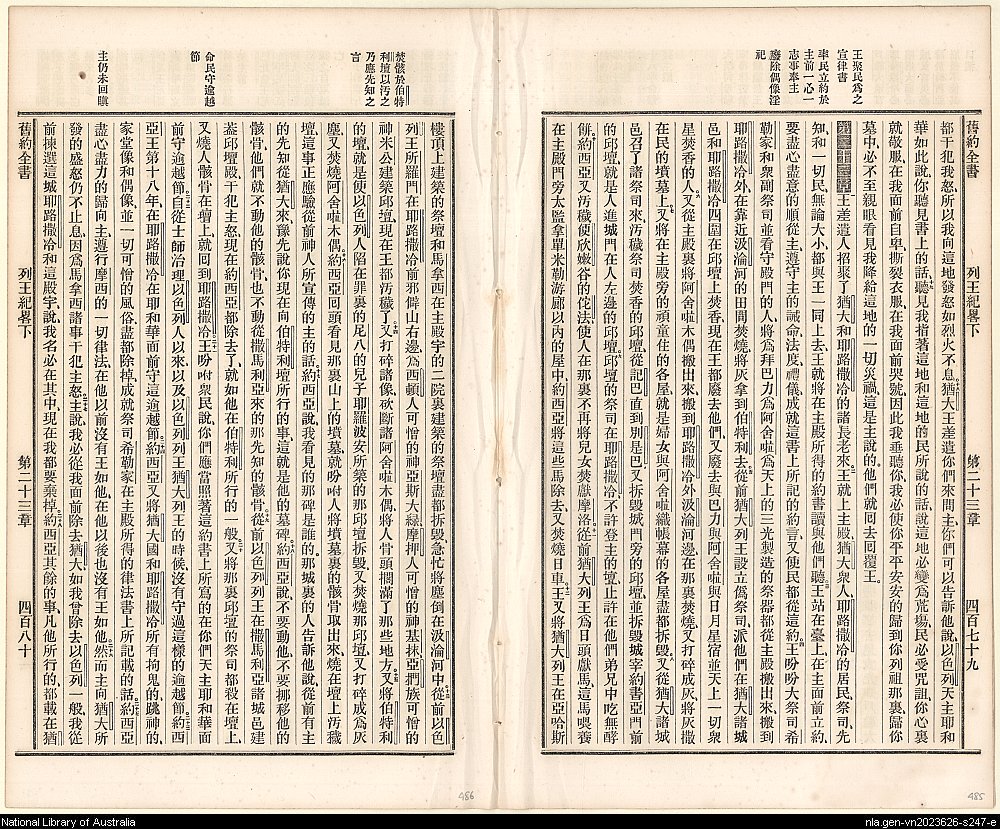 王聚民爲之
宣律書
率民立約於
主前一心一
志事奉主
廢除偶像淫
祀
舊約全書
列王紀畧下
第二十三章
四百七十九
都干犯我怒所以我向這地發怒如烈火不息猶大王差遣你們來問主你們可以告訴他說以色列天主耶和
華如此說你聽見書上的話聽見我指著這地和這地的民所說的話說這地必變爲荒塲民必受咒詛你心裏
就敬服在我面前自卑撕裂衣服在我面前哭號因此我垂聽你我必使你平平安安的歸到你列祖那裏歸你
墓中必不至親眼看見我降給這地的一切災禍這是主說的他們就囘去囘覆王
王差遣人招聚了猶大和耶路撒冷的諸長老來王就上主殿猶大衆人耶路撒冷的居民祭司先
知和一切民無論大小都與王一同上去王就將在主殿所得的約書讀與他們聽王站在臺上在主面前立約
要盡心盡意的順從主遵守主的誡命法度禮儀成就這書上所記的約言又使民都從這約王吩咐大祭司希
勒家和衆副祭司並看守殿門的人將爲拜巴力爲阿舍啦爲天上的三光製造的祭器都從主殿搬出來搬到
耶路撒冷外在靠近汲淪河的田間焚燒將灰拿到伯特利去從前猶大列王設立僞祭司派他們在猶大諸城
邑和耶路撒冷四圍在邱壇上焚香現在王都廢去他們又廢去與巴力與阿舍啦與日月星宿並天上一切衆
星焚香的人又從主殿裏將阿舍啦木偶搬出來搬到耶路撒冷外汲淪河邊在那裏焚燒又打碎成灰將灰撒
在民的墳墓上又將在主殿旁的頑童住的各屋就是婦女與阿舍啦織帳幕的各屋盡都拆毀又從猶大諸城
邑召了諸祭司來汚穢祭司焚香的邱壇從記巴直到別是巴又拆毀城門旁的邱壇並拆毀城宰約書亞門前
的邱壇就是人進城門在人左邊的邱壇邱壇的祭司在耶路撒冷不許登主的壇止許在他們弟兄中吃無酵
餅約西亞又汚穢便欣嫩谷的佗法使人在那裏不再將兒女焚獻摩洛從前猶大列王爲日頭獻馬這馬喂養
在主殿門旁太監拿單米勒游廊以內的屋中約西亞將這些馬除去又焚燒日車王又將猶大列王在亞哈斯
焚骸於伯特
利壇以汚之
乃應先知之
言
命民守逾越
節
主仍未回瞋
樓頂上建築的祭壇和馬拿西在主殿宇的二院裏建築的祭壇盡都拆毀急忙將塵倒在汲淪河中從前以色
列王所羅門在耶路撒冷前邪僻山右邊爲西頓人可憎的神亞斯大綠摩押人可憎的神基抹亞捫族可憎的
神米公建築邱壇現在王都汚穢了又打碎諸像砍斷諸阿舍啦木偶將人骨頭擱滿了那些地方又將伯特利
的壇就是使以色列人陷在罪裏的尼八的兒子耶羅波安所築的那壇和邱壇拆毀又焚燒那邱壇打碎成爲灰
塵又焚燒阿舍啦木偶約西亞囘頭看見那裏山上的墳墓就吩咐人將墳墓裏的骸骨取出來燒在壇上汚穢
壇這事正應驗從前神人所宣傳的主的話約西亞說我看見的那碑是誰的那城裏的人告訴他說從前有主
的先知從猶大來豫先說你現在向伯特利壇所行的事這就是他的墓碑約西亞說不要動他不要挪移他的
骸骨他們就不動他的骸骨也不動從撒馬利亞來的那先知的骸骨從前以色列列王在撒馬利亞諸城邑建
葢邱壇殿干犯主怒現在約西亞都除去了就如他在伯特利所行的一般又將那裏邱壇的祭司都殺在壇上
又燒人骸骨在壇上就囘到耶路撒冷王吩咐衆民說你們應當照著這約書上所寫的在你們天主耶和華面
前守逾越節自從士師治理以色列人以來以及以色列列王猶大列王的時候沒有守過這樣的逾越節約西
亞王第十八年在耶路撒冷在耶和華面前守這逾越節約西亞又將猶大國和耶路撒冷所有拘鬼的跳神的
家堂像和偶像並一切可憎的風俗盡都除掉成就祭司希勒家在主殿所得的律法書上所記載的話約西亞
盡心盡力的歸向主遵行摩西的一切律法在他以前沒有王如他在他以後也沒有王如他然而主向猶大所
發的盛怒仍不止息因爲馬拿西諸事干犯主怒主說我必從我面前除去猶大如我曾除去以色列一般我從
前揀選這城耶路撒冷和這殿宇說我名必在其中現在我都要棄掉約西亞其餘的事凡他所行的都載在猶
舊約全書
列王紀畧下
第二十三章
四百八十
486
485
National Library of Australia
nla.gen-vn2023626-s247-e